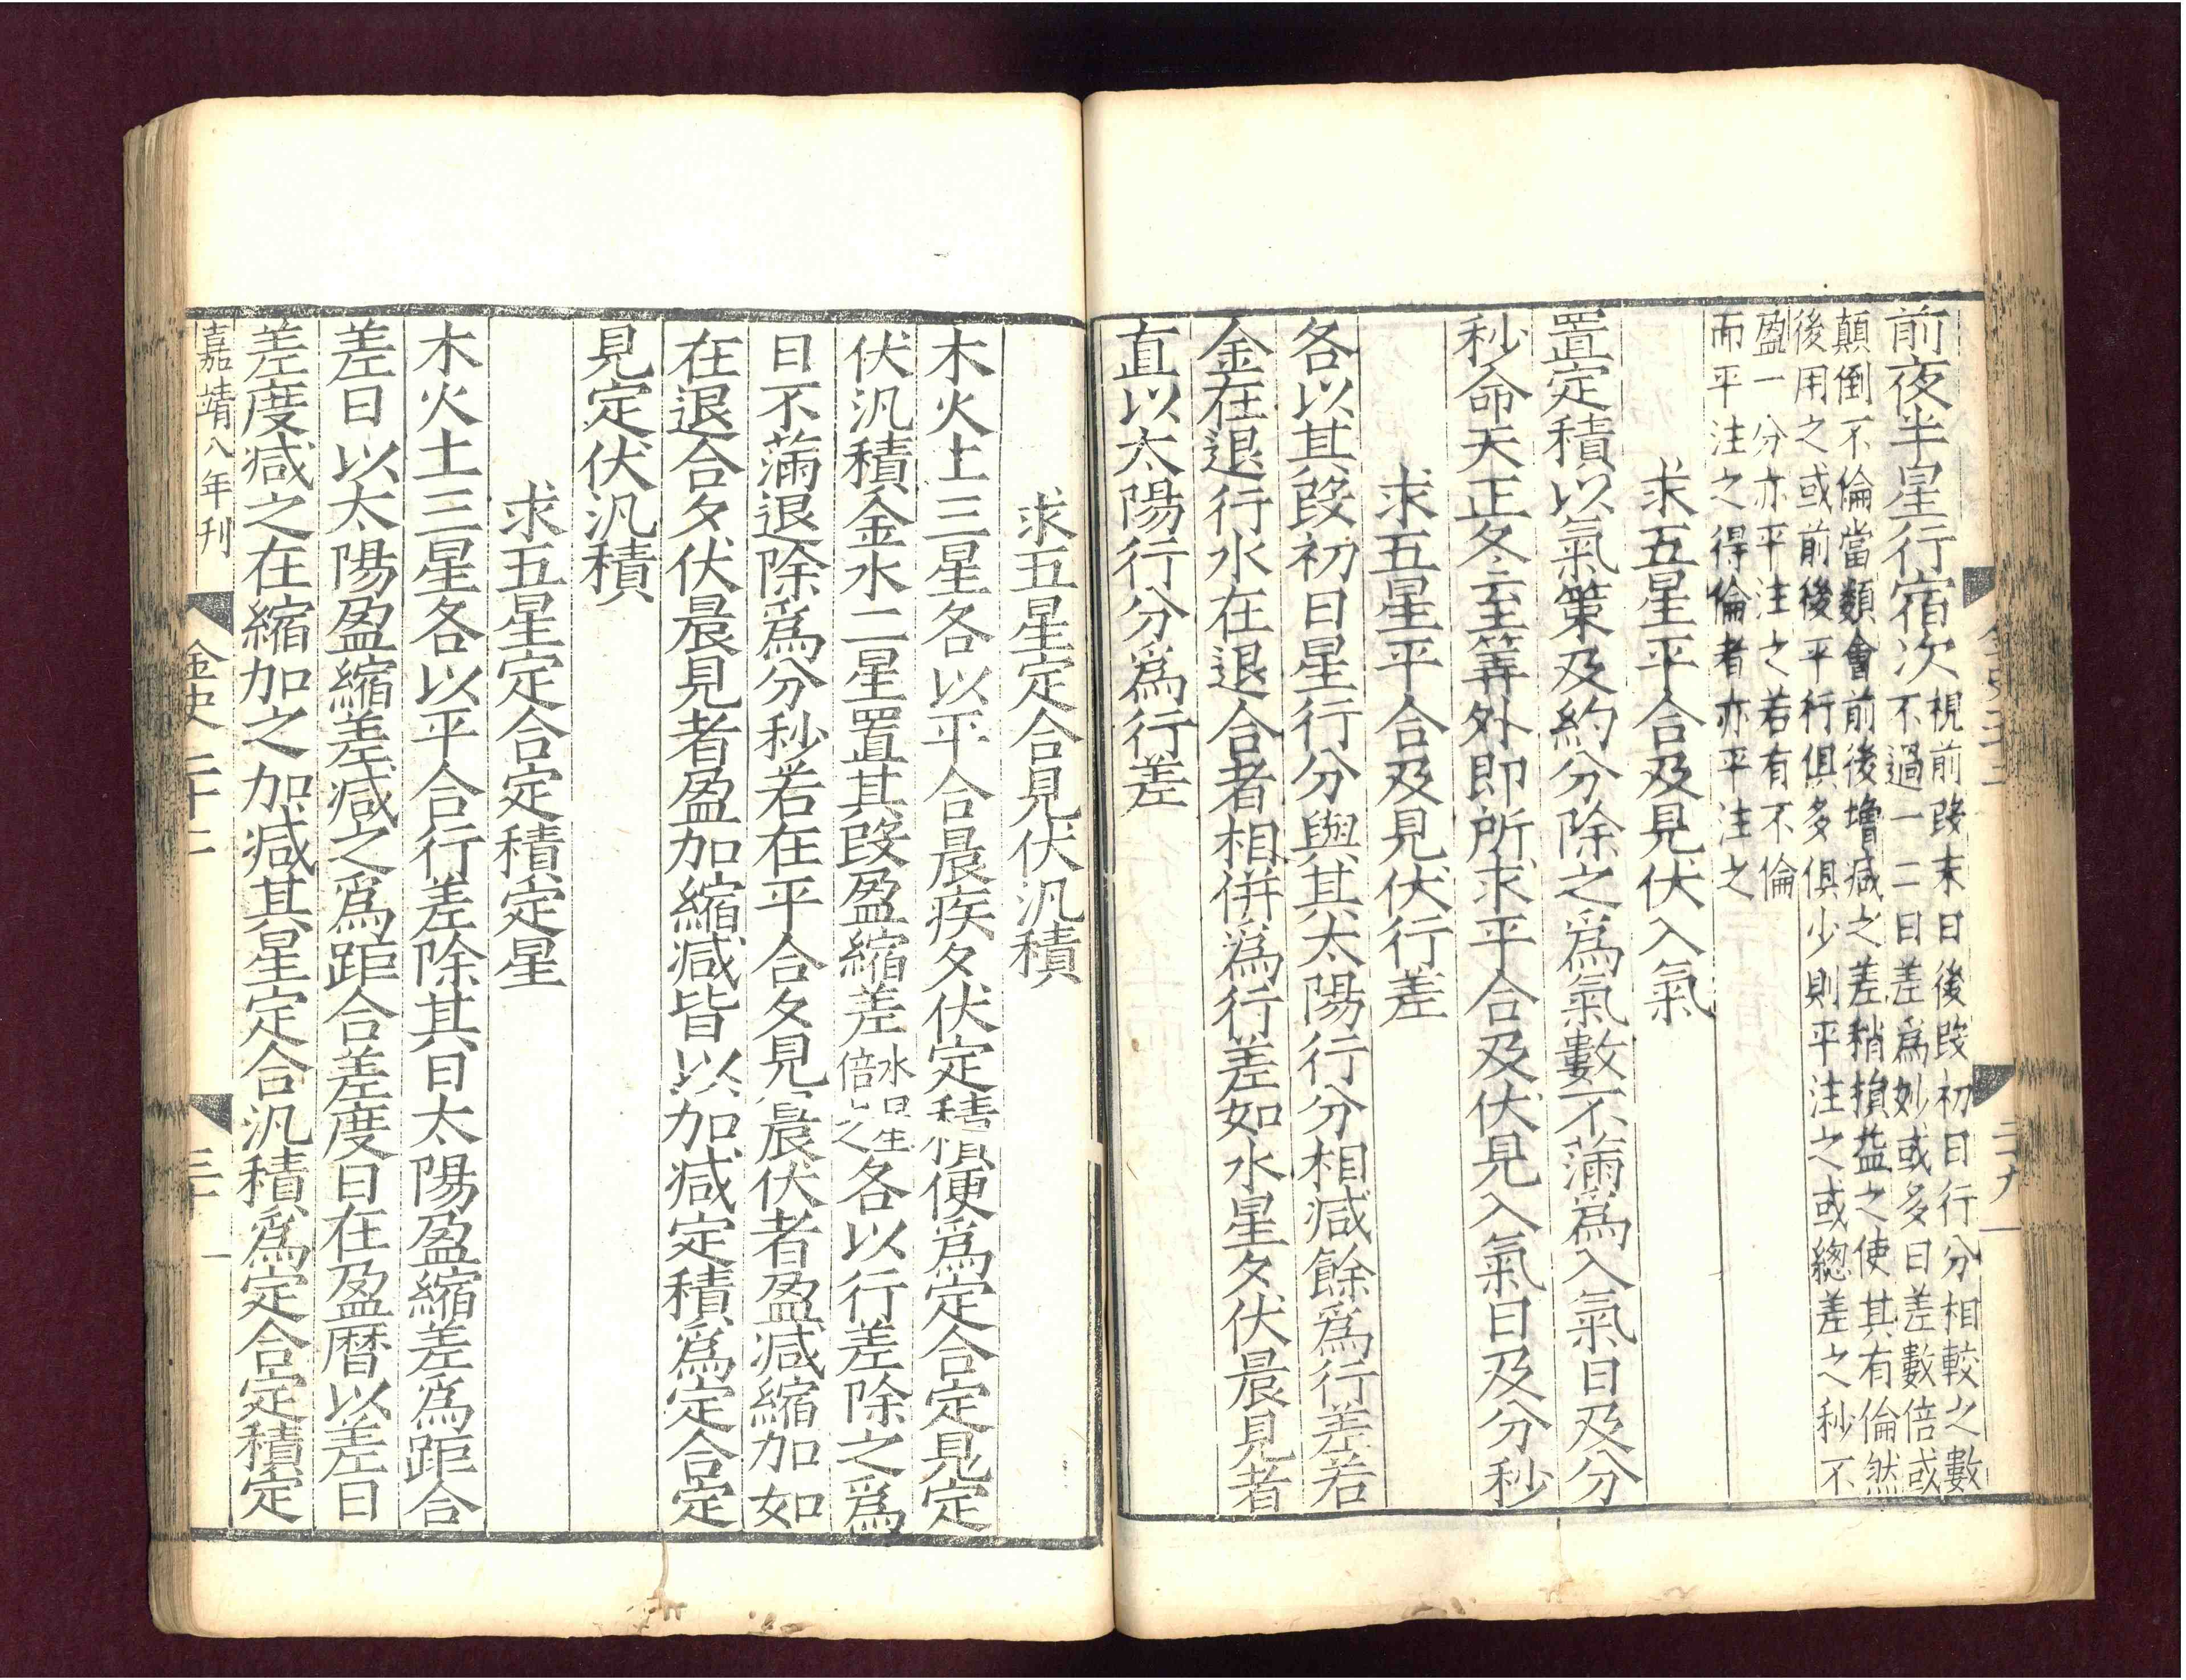 前夜半星行宿次視前段末日後段初日行分相較之數
不過一二日差爲妙或多日差數倍或
顛倒不倫當類會前後增减之差稍損益之使其有倫然
後用之或前後平行俱多俱少則平注之或總差之秒不
盈一分亦平注之若有不倫
而平注之得倫者亦平注之
求五星平合及見伏入氣
置定積以氣策及約分除之爲氣數不滿爲入氣日及分
秒命天正冬至筭外即所求平合及伏見入氣日及分秒
求五星平合及見伏行差
各以其段初日星行分與其太陽行分相减餘爲行差若
金在退行水在退合者相併爲行差如水星夕伏晨見者
直以太陽行分爲行差
二十九
求五星定合見伏汎積
木火土三星各以平合晨疾夕伏定積便爲定合定見定
伏汎積金水二星置其段盈縮差水星
倍之各以行差除之爲
日不滿退除爲分秒若在平合夕見晨伏者盈减縮加如
在退合夕伏晨見者盈加縮减皆以加减定積爲定合定
見定伏汎積
求五星定合定積定星
木火土三星各以平合行差除其日太陽盈縮差爲距合
差日以太陽盈縮差减之爲距合差度日在盈曆以差日
差度减之在縮加之加减其星定合汎積爲定合定積定
嘉靖八年刊
金史二十二
三十